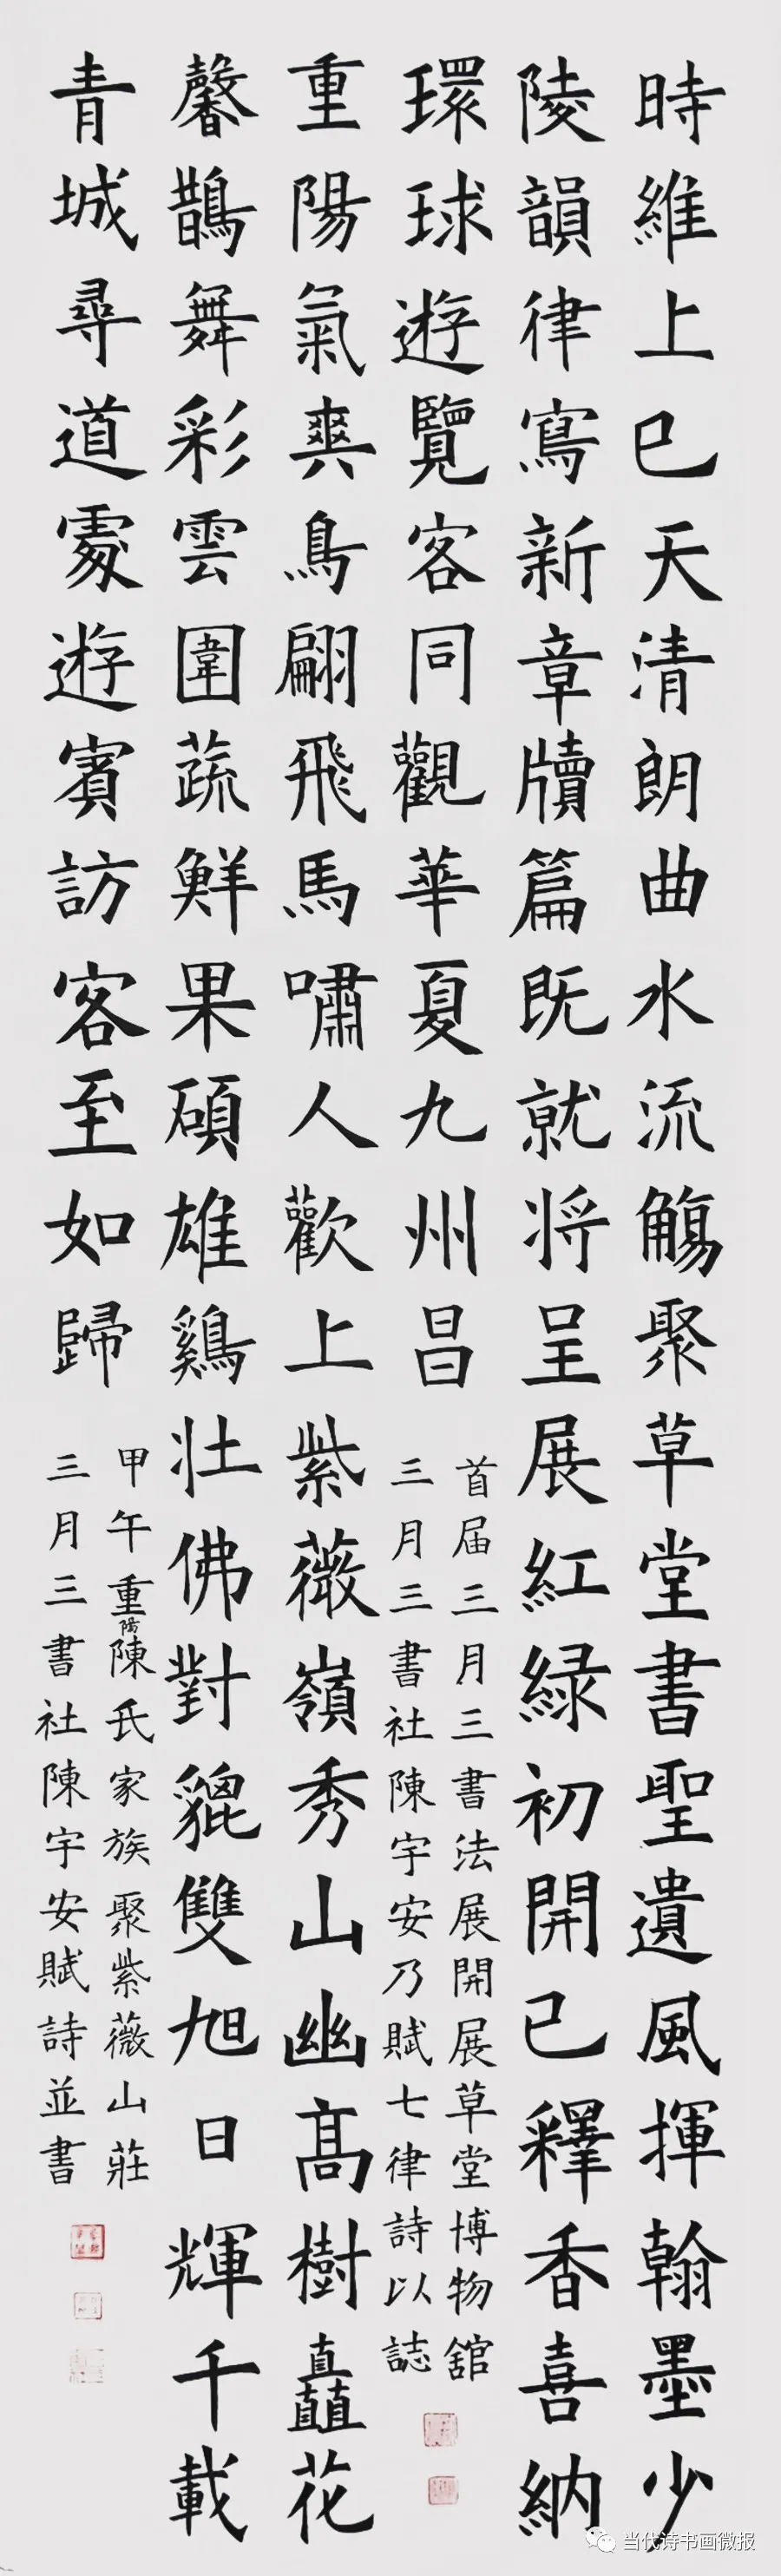 時維上巳天清朗曲水流觴聚草堂書聖遺風揮翰墨少
陵韻律寫新章牘篇既就将呈展紅緑初開已釋香喜納
環球遊覽客同觀華夏九州昌
首届三月三書法展開展草堂博物舘
三月三書社陳宇安乃賦七律詩以誌
重陽氣爽鳥翩飛馬嘯人歡上紫薇嶺秀山幽髙樹矗花
馨鵲舞彩雲圍蔬鮮果碩雄鷄壯佛對貔雙旭日輝千載
青城尋道處遊賓訪客至如歸
甲午重陽陳氏家族聚紫薇山莊
三月三書社陳宇安賦詩並書
当代诗书画微报